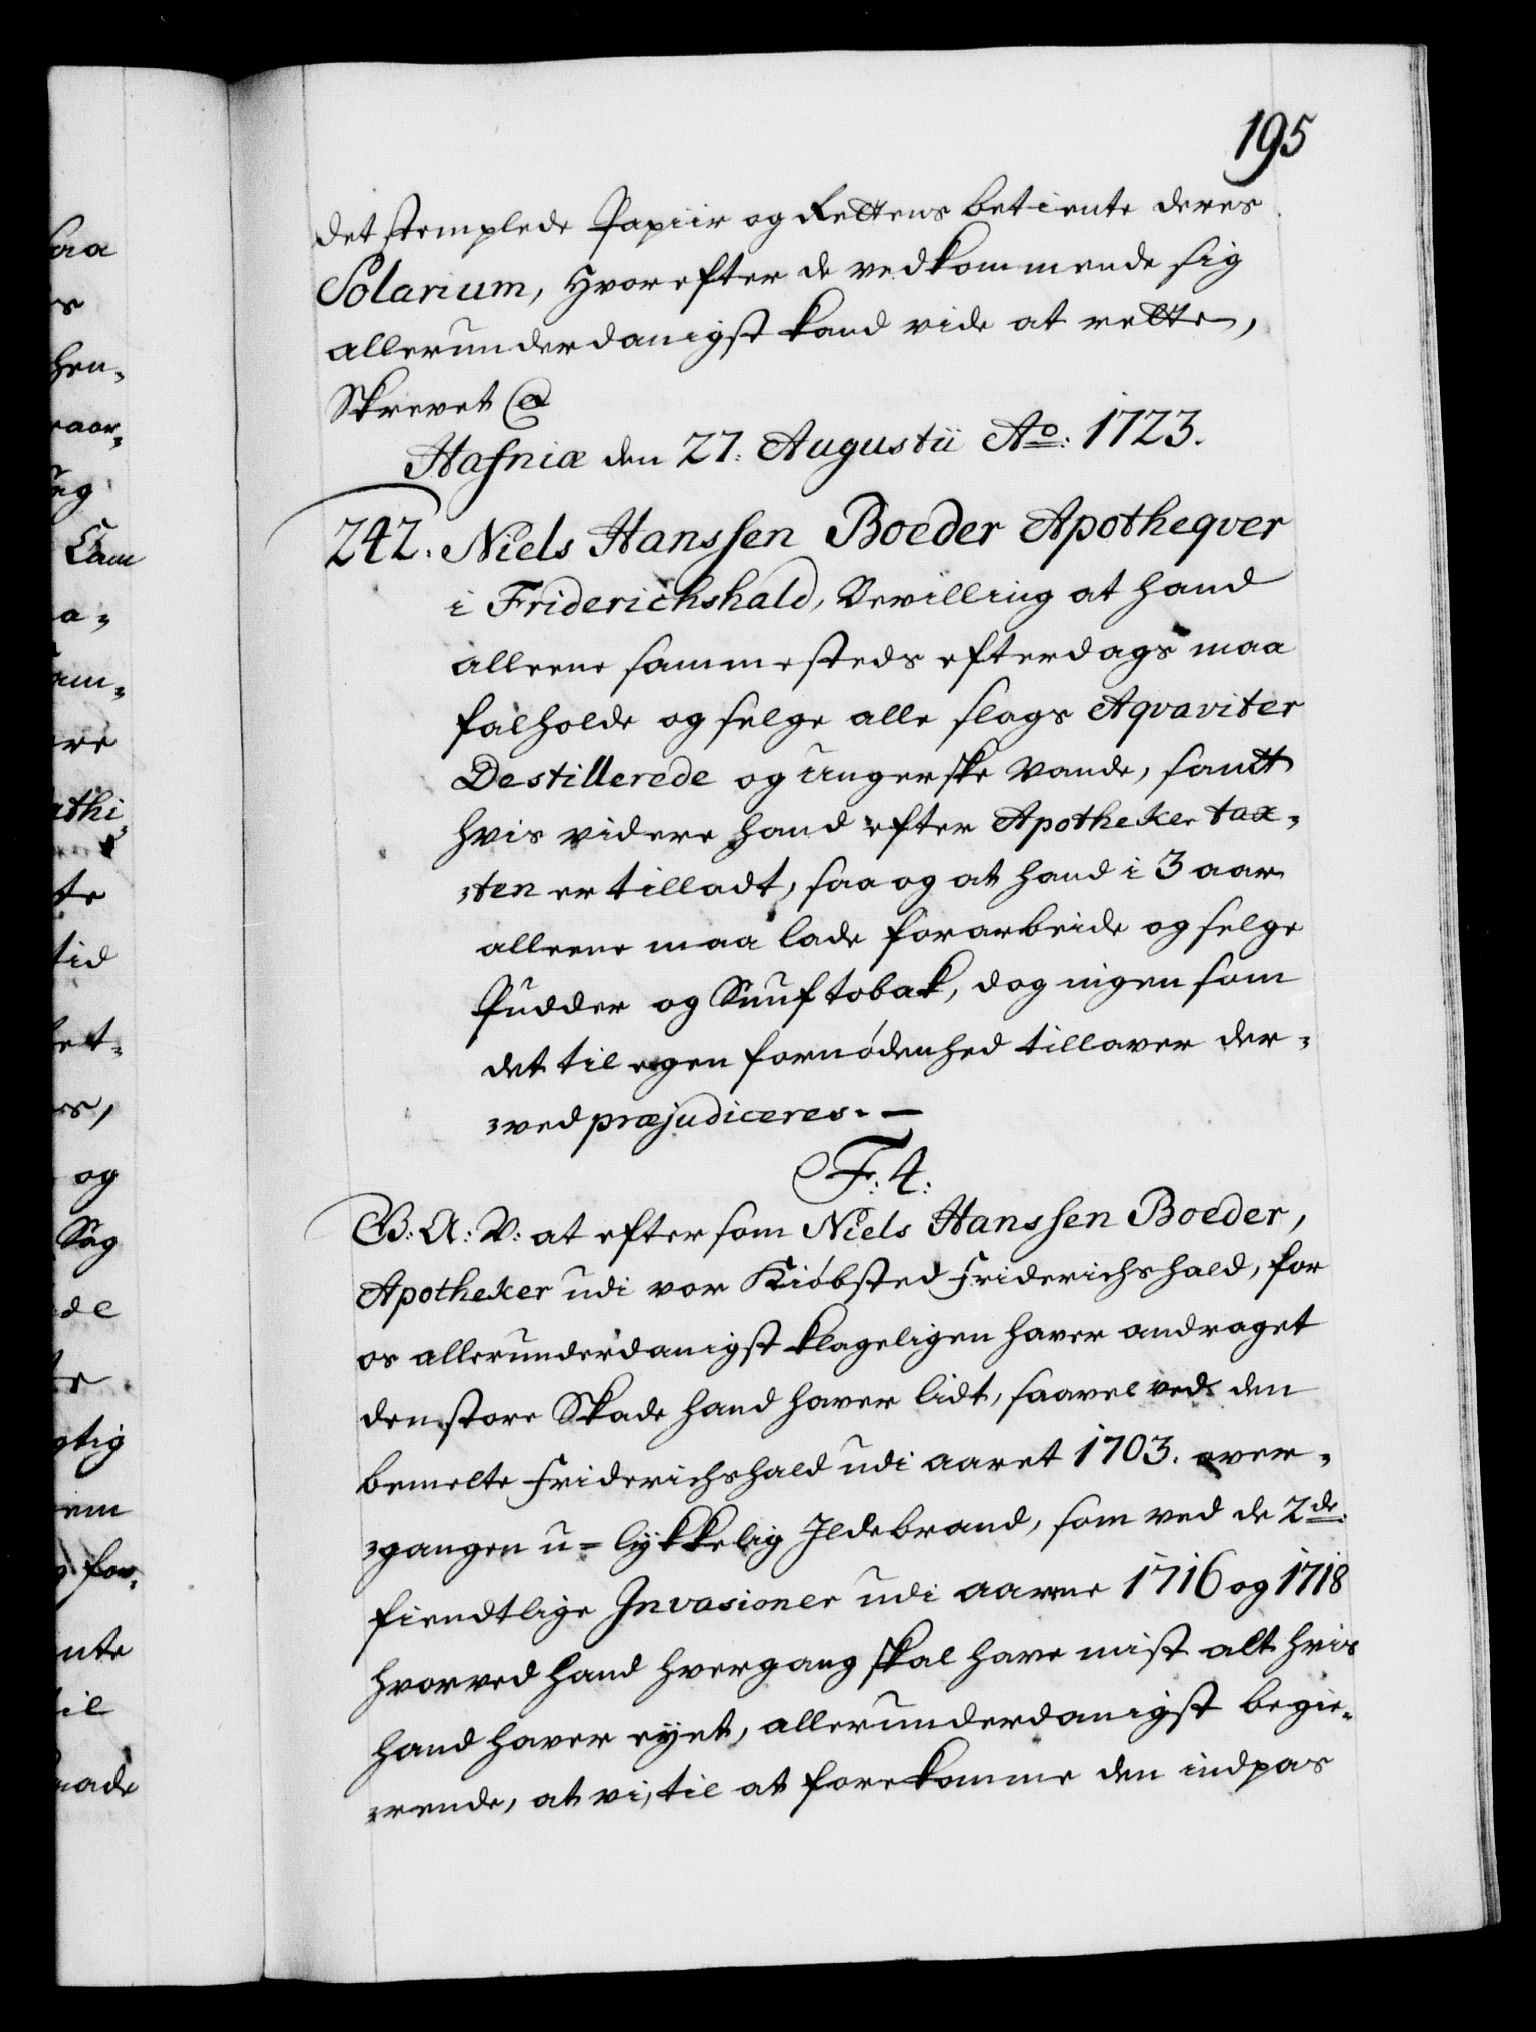 195
det stemplede Papiir og Rettens betiente deres
Solarium, Hvorefter de vedkommende sig
allerunderdanigst kand vide at rette,
Skrevet
Hafniæ den 27. Augustii Ao: 1723.
242. Niels Hanssen Boeder Apotheqver
i Friderichshald, Bevilling at hand
alleene sammesteds efterdags maa
falholde og selge alle slags Aqvaviter
Destillerede og Ungerske Vande, samt
hvis videre hand efter Apotheker tax-
-ten er tilladt, saa og at hand i 3 aar
alleene maa lade forarbeide og selge
Pudder og Snuftobak, dog ingen som
det til egen fornødenhed tillaver der-
-ved præjudiceres. -
F: 4:
G: A: V: at eftersom Niels Hanssen Boeder,
Apotheker udi vor Kiøbsted Friderichshald, for
os allerunderdanigst klageligen haver andraget
den store Skade hand haver lidt, saavel ved den
bemelte Friderichshald udi aaret 1703. over-
-gangen u-lykkelig Ildebrand, som ved de 2de
fiendtlige Invasioner udi aarene 1716 og 1718
hvorved hand hvergang skal have mist alt hvis
hand haver eyet, allerunderdanigst begie-
-rende, at vi, til at forekomme den indpas
saa
hen-
Cam
a-
te
tid
og
Sag
de
gtig
for-
nte
il